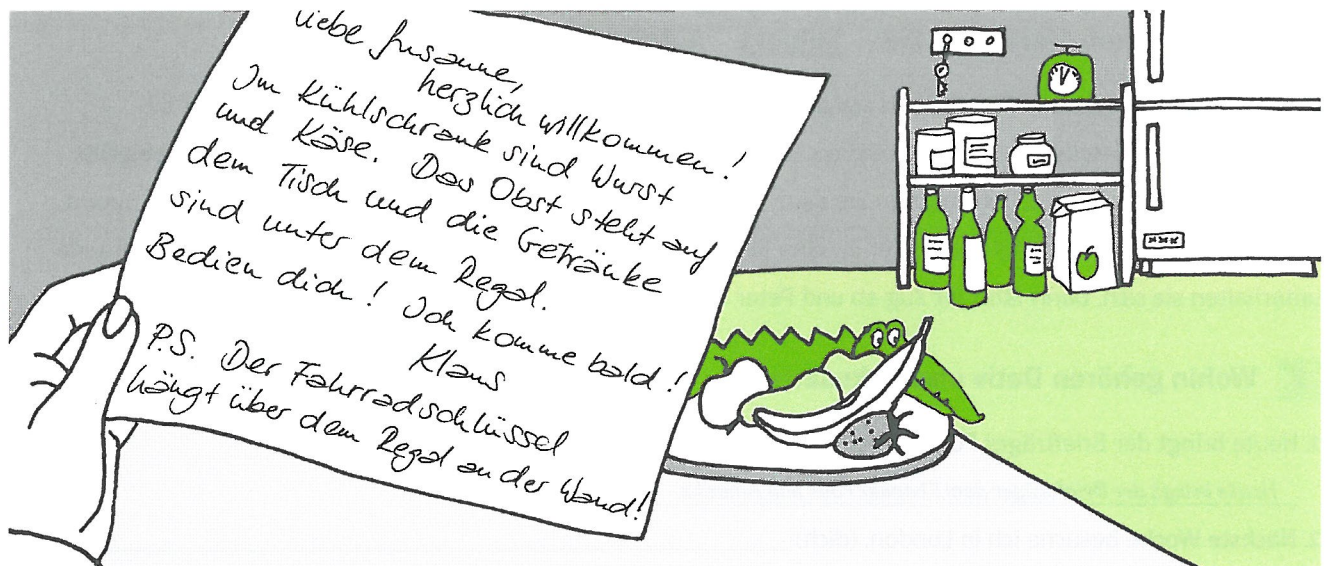 Liebe Susanne,
herzlich willkommen!
Im Kühlschrank sind Wurst
und Käse. Das Obst steht auf
dem Tisch und die Getränke
sind unter dem Regal.
Bedien dich! Ich komme bald!
Klaus
P.S. Der Fahrradschlüssel
hängt über dem Regal an der Wand!